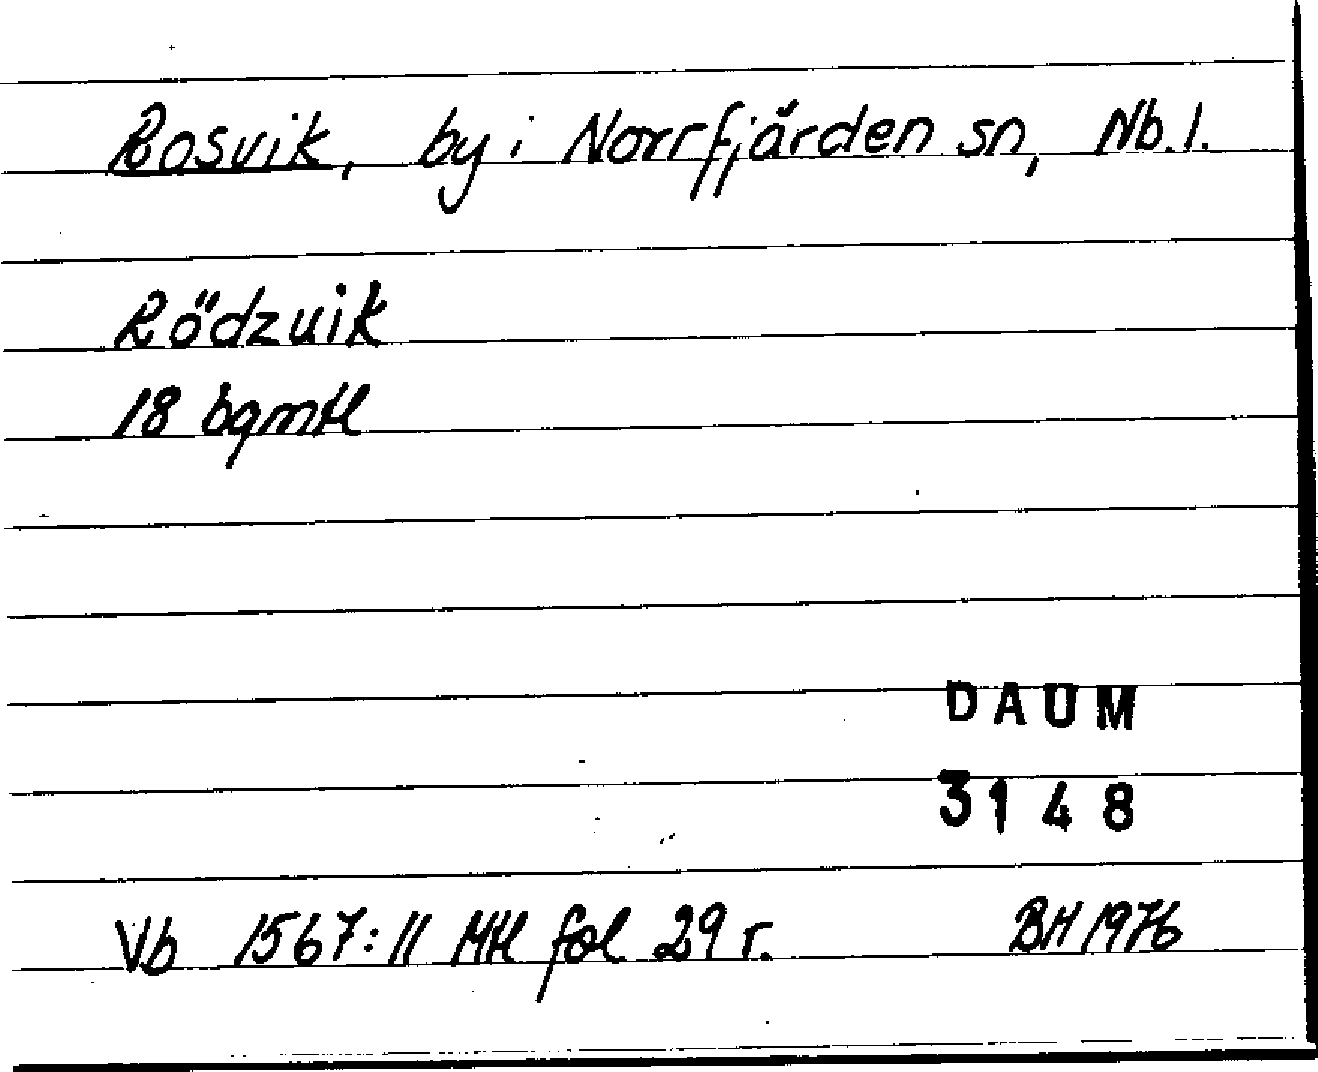 Rosvik, by i Norrfjärden sn, Nb.l.
Rödzuik
18 bgmtl
DAUM
3148
Vb 1567:11 Mtl fol 29 r. BH 1976